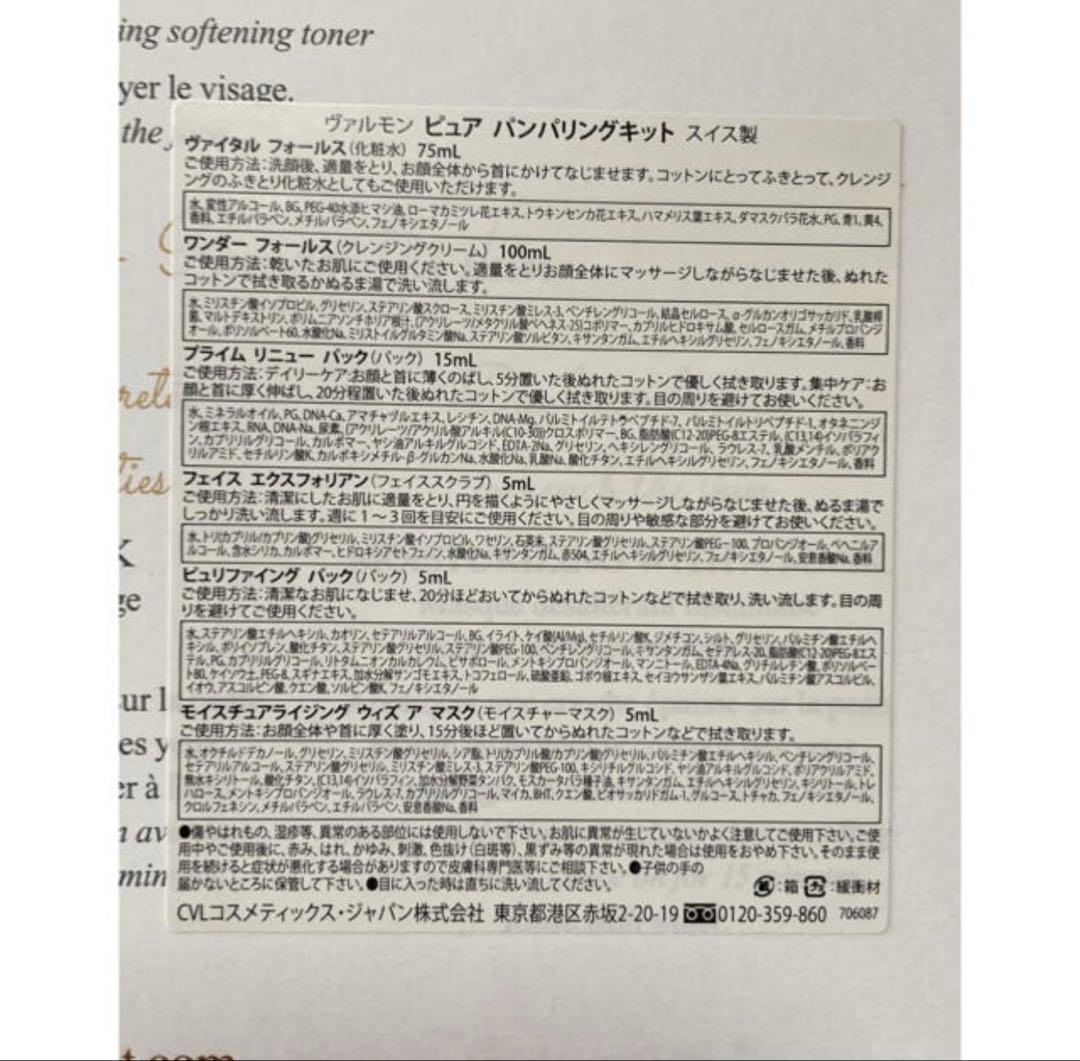 ing softening toner
yer le visage.
the
ヴァルモン ピュア パンパリングキット スイス製
ヴァイタル フォールス(化粧水) 75mL
ご使用方法:洗顔後、適量をとり、お顔全体から首にかけてなじませます。コットンにとってふきとって、クレンジ
ングのふきとり化粧水としてもご使用いただけます。
水、変性アルコール、BG、PEG-40水添ヒマシ油、ローマカミツレ花エキス、トウキンセンカ花エキス、ハマメリス葉エキス、ダマスクバラ花水、PG、青1、黄4、
香料、エチルパラベン、メチルパラベン、フェノキシエタノール
ワンダー フォールス(クレンジングクリーム) 100mL
ご使用方法:乾いたお肌にご使用ください。適量をとりお顔全体にマッサージしながらなじませた後、ぬれた
コットンで拭き取るかぬるま湯で洗い流します。
水、ミリスチン酸イソプロピル、グリセリン、ステアリン酸スクロース、ミリスチン酸ミレス-3、ペンチレングリコール、結晶セルロース、α-グルカンオリゴサッカリド、乳酸桿
菌、マルトデキストリン、ポリムニアソンチホリア根汁、(アクリレーツ/メタクリル酸ベヘネス-25)コポリマー、カプリルヒドロキサム酸、セルロースガム、メチルプロパンジ
オール、ポリソルベート60、水酸化Na、ミリストイルグルタミン酸Na、ステアリン酸ソルビタン、キサンタンガム、エチルヘキシルグリセリン、フェノキシエタノール、香料
プライム リニュー パック(パック) 15mL
ご使用方法:デイリーケア:お顔と首に薄くのばし、5分置いた後ぬれたコットンで優しく拭き取ります。集中ケア:お
顔と首に厚く伸ばし、20分程置いた後ぬれたコットンで優しく拭き取ります。目の周りを避けてお使いください。
水、ミネラルオイル、PG、DNA-Ca、アマチャヅルエキス、レシチン、DNA-Mg、パルミトイルテトラペプチド-7、パルミトイルトリペプチド-1、オタネニンジ
ン根エキス、RNA、DNA-Na、尿素、(アクリレーツ/アクリル酸アルキル(C10-30))クロスポリマー、BG、脂肪酸(C12-20)PEG-8エステル、(C13,14)イソパラフィ
ン、カプリリルグリコール、カルボマー、ヤシ油アルキルグルコシド、EDTA-2Na、グリセリン、ヘキシレングリコール、ラウレス-7、乳酸メンチル、ポリアク
リルアミド、セチルリン酸K、カルボキシメチル-β-グルカンNa、水酸化Na、乳酸Na、酸化チタン、エチルヘキシルグリセリン、フェノキシエタノール、香料
フェイス エクスフォリアン(フェイススクラブ) 5mL
ご使用方法:清潔にしたお肌に適量をとり、円を描くようにやさしくマッサージしながらなじませた後、ぬるま湯で
しっかり洗い流します。週に1~3回を目安にご使用ください。目の周りや敏感な部分を避けてお使いください。
水、トリ(カプリル/カプリン酸)グリセリル、ミリスチン酸イソプロピル、ワセリン、石英末、ステアリン酸グリセリル、ステアリン酸PEG-100、プロパンジオール、ベヘニルア
ルコール、含水シリカ、カルボマー、ヒドロキシアセトフェノン、水酸化Na、キサンタンガム、赤504、エチルヘキシルグリセリン、フェノキシエタノール、安息香酸Na、香料
ピュリファイング パック(パック) 5mL
ご使用方法:清潔なお肌になじませ、20分ほどおいてからぬれたコットンなどで拭き取り、洗い流します。目の周
りを避けてご使用ください。
水、ステアリン酸エチルヘキシル、カオリン、セテアリルアルコール、BG、イライト、ケイ酸(Al/Mg)、セチルリン酸K、ジメチコン、シルト、グリセリン、パルミチン酸エチルヘ
キシル、ポリイソプレン、酸化チタン、ステアリン酸グリセリル、ステアリン酸PEG-100、ペンチレングリコール、キサンタンガム、セテアレス-20、脂肪酸(C12-20)PEG-8エス
テル、PG、カプリリルグリコール、リトタムニオンカルカレウム、ビサボロール、メントキシプロパンジオール、マンニトール、EDTA-4Na、グリチルレチン酸、ポリソルベー
ト80、ケイソウ土、PEG-8、スギナエキス、加水分解サンゴモエキス、トコフェロール、硫酸亜鉛、ゴボウ根エキス、セイヨウサンザシ葉エキス、パルミチン酸アスコルビル、
イオウ、アスコルビン酸、クエン酸、ソルビン酸K、フェノキシエタノール
モイスチュアライジング ウィズ ア マスク(モイスチャーマスク) 5mL
ご使用方法:お顔全体や首に厚く塗り、15分後ほど置いてからぬれたコットンなどで拭き取ります。
水、オクチルドデカノール、グリセリン、ミリスチン酸グリセリル、シア脂、トリ(カプリル酸/カプリン酸)グリセリル、パルミチン酸エチルヘキシル、ペンチレングリコール、
セテアリルアルコール、ステアリン酸グリセリル、ミリスチン酸ミレス-3、ステアリン酸PEG-100、キシリチルグルコシド、ヤシ油アルキルグルコシド、ポリアクリルアミド、
無水キシリトール、酸化チタン、(C13,14)イソパラフィン、加水分解野菜タンパク、モスカータバラ種子油、キサンタンガム、エチルヘキシルグリセリン、キシリトール、トレ
ハロース、メントキシプロパンジオール、ラウレス-7、カプリリルグリコール、マイカ、BHT、クエン酸、ビオサッカリドガム-1、グルコース、トチャカ、フェノキシエタノール、
クロルフェネシン、メチルパラベン、エチルパラベン、安息香酸Na、香料
●傷やはれもの、湿疹等、異常のある部位には使用しないで下さい。お肌に異常が生じていないかよく注意してご使用下さい。ご使
用中やご使用後に、赤み、はれ、かゆみ、刺激、色抜け(白斑等)、黒ずみ等の異常が現れた場合は使用をおやめ下さい。そのまま使
用を続けると症状が悪化する場合がありますので皮膚科専門医等にご相談下さい。●子供の手の
届かないところに保管して下さい。●目に入った時は直ちに洗い流してください。
紙:箱 プラ:緩衝材
CVLコスメティックス・ジャパン株式会社 東京都港区赤坂2-20-19 0120-359-860 706087
ret
ties
K
ge
ur l
es y
er à
n av
min
t.com